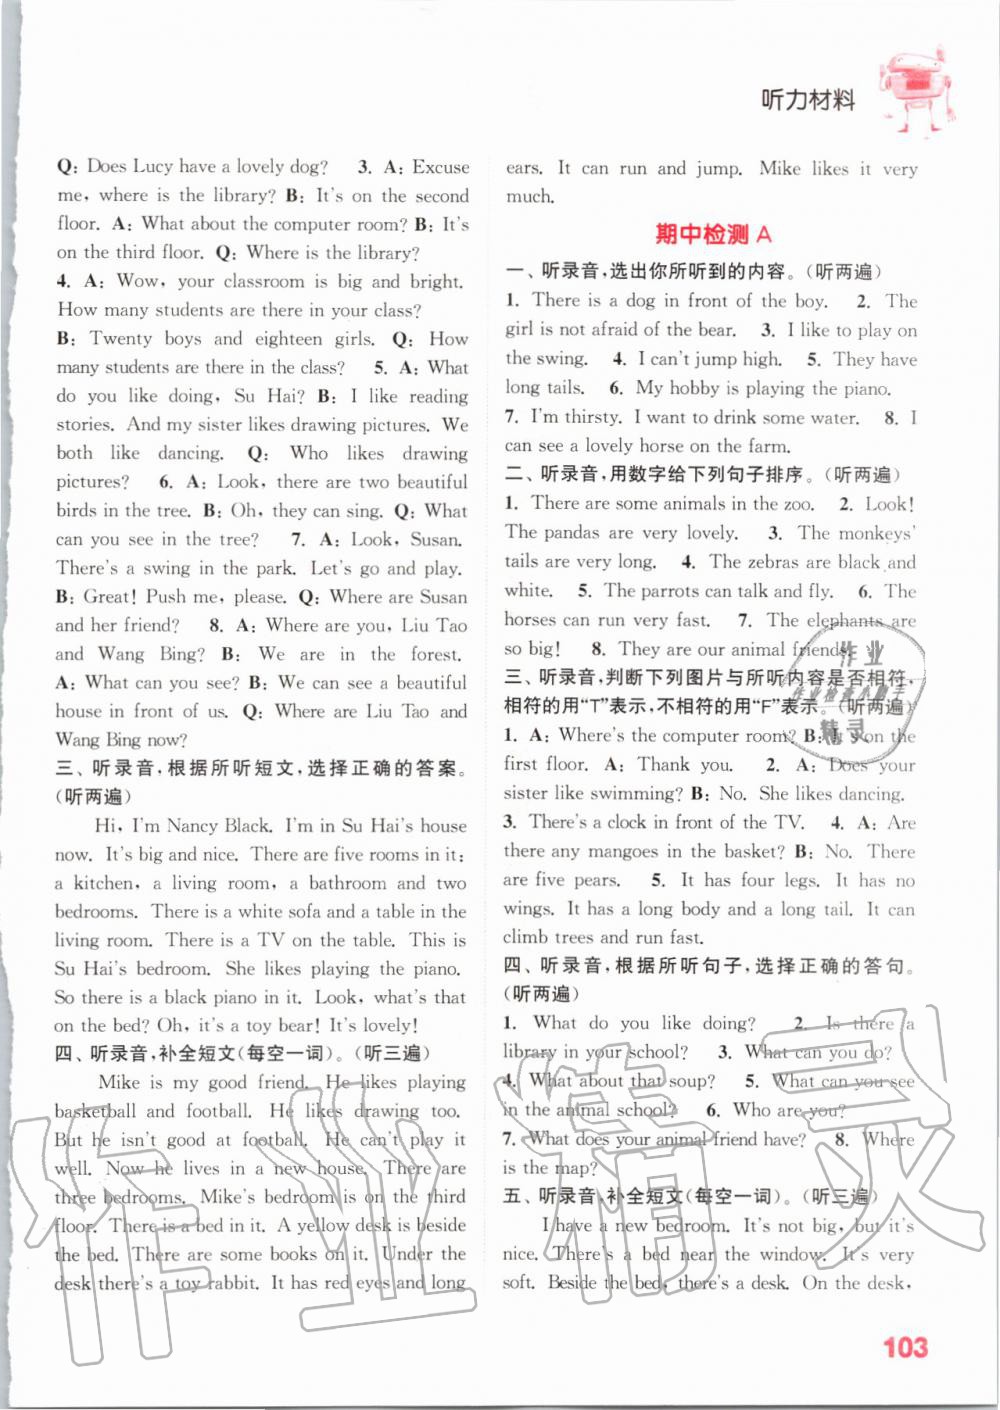 听力材料
Q: Does Lucy have a lovely dog? 3. A: Excuse
me, where is the library? B: It's on the second
floor. A: What about the computer room? B: It's
on the third floor. Q: Where is the library?
4. A: Wow, your classroom is big and bright.
How many students are there in your class?
B: Twenty boys and eighteen girls. Q: How
many students are there in the class? 5. A: What
do you like doing, Su Hai? B: I like reading
stories. And my sister likes drawing pictures. We
both like dancing. Q: Who likes drawing
pictures? 6. A: Look, there are two beautiful
birds in the tree. B: Oh, they can sing. Q: What
can you see in the tree? 7. A: Look, Susan.
There's a swing in the park. Let's go and play.
B: Great! Push me, please. Q: Where are Susan
and her friend? 8. A: Where are you, Liu Tao
and Wang Bing? B: We are in the forest.
A: What can you see? B: We can see a beautiful
house in front of us. Q: Where are Liu Tao and
Wang Bing now?
三、听录音,根据所听短文,选择正确的答案。
(听两遍)
Hi, I'm Nancy Black. I'm in Su Hai's house
now. It's big and nice. There are five rooms in it:
a kitchen, a living room, a bathroom and two
bedrooms. There is a white sofa and a table in the
living room. There is a TV on the table. This is
Su Hai's bedroom. She likes playing the piano.
So there is a black piano in it. Look, what's that
on the bed? Oh, it's a toy bear! It's lovely!
四、听录音,补全短文(每空一词)。(听三遍)
Mike is my good friend. He likes playing
basketball and football. He likes drawing too.
But he isn't good at football. He can't play it
well. Now he lives in a new house. There are
three bedrooms. Mike's bedroom is on the third
floor. There is a bed in it. A yellow desk is beside
the bed. There are some books on it. Under the
desk there's a toy rabbit. It has red eyes and long
ears. It can run and jump. Mike likes it very
much.
期中检测 A
一、听录音,选出你所听到的内容。(听两遍)
1. There is a dog in front of the boy. 2. The
girl is not afraid of the bear. 3. I like to play on
the swing. 4. I can't jump high. 5. They have
long tails. 6. My hobby is playing the piano.
7. I'm thirsty. I want to drink some water. 8. I
can see a lovely horse on the farm.
二、听录音,用数字给下列句子排序。(听两遍)
1. There are some animals in the zoo. 2. Look!
The pandas are very lovely. 3. The monkeys'
tails are very long. 4. The zebras are black and
white. 5. The parrots can talk and fly. 6. The
horses can run very fast. 7. The elephants are
so big! 8. They are our animal friends.
三、听录音,判断下列图片与所听内容是否相符,
相符的用“T”表示,不相符的用“F”表示。(听两遍)
1. A: Where's the computer room? B: It's on the
first floor. A: Thank you. 2. A: Does your
sister like swimming? B: No. She likes dancing.
3. There's a clock in front of the TV. 4. A: Are
there any mangoes in the basket? B: No. There
are five pears. 5. It has four legs. It has no
wings. It has a long body and a long tail. It can
climb trees and run fast.
四、听录音,根据所听句子,选择正确的答句。
(听两遍)
1. What do you like doing? 2. Is there a
library in your school? 3. What can you do?
4. What about that soup? 5. What can you see
in the animal school? 6. Who are you?
7. What does your animal friend have? 8. Where
is the map?
五、听录音,补全短文(每空一词)。(听三遍)
I have a new bedroom. It's not big, but it's
nice. There's a bed near the window. It's very
soft. Beside the bed, there's a desk. On the desk,
103
作业
作业检查小助手
精灵
作业精灵